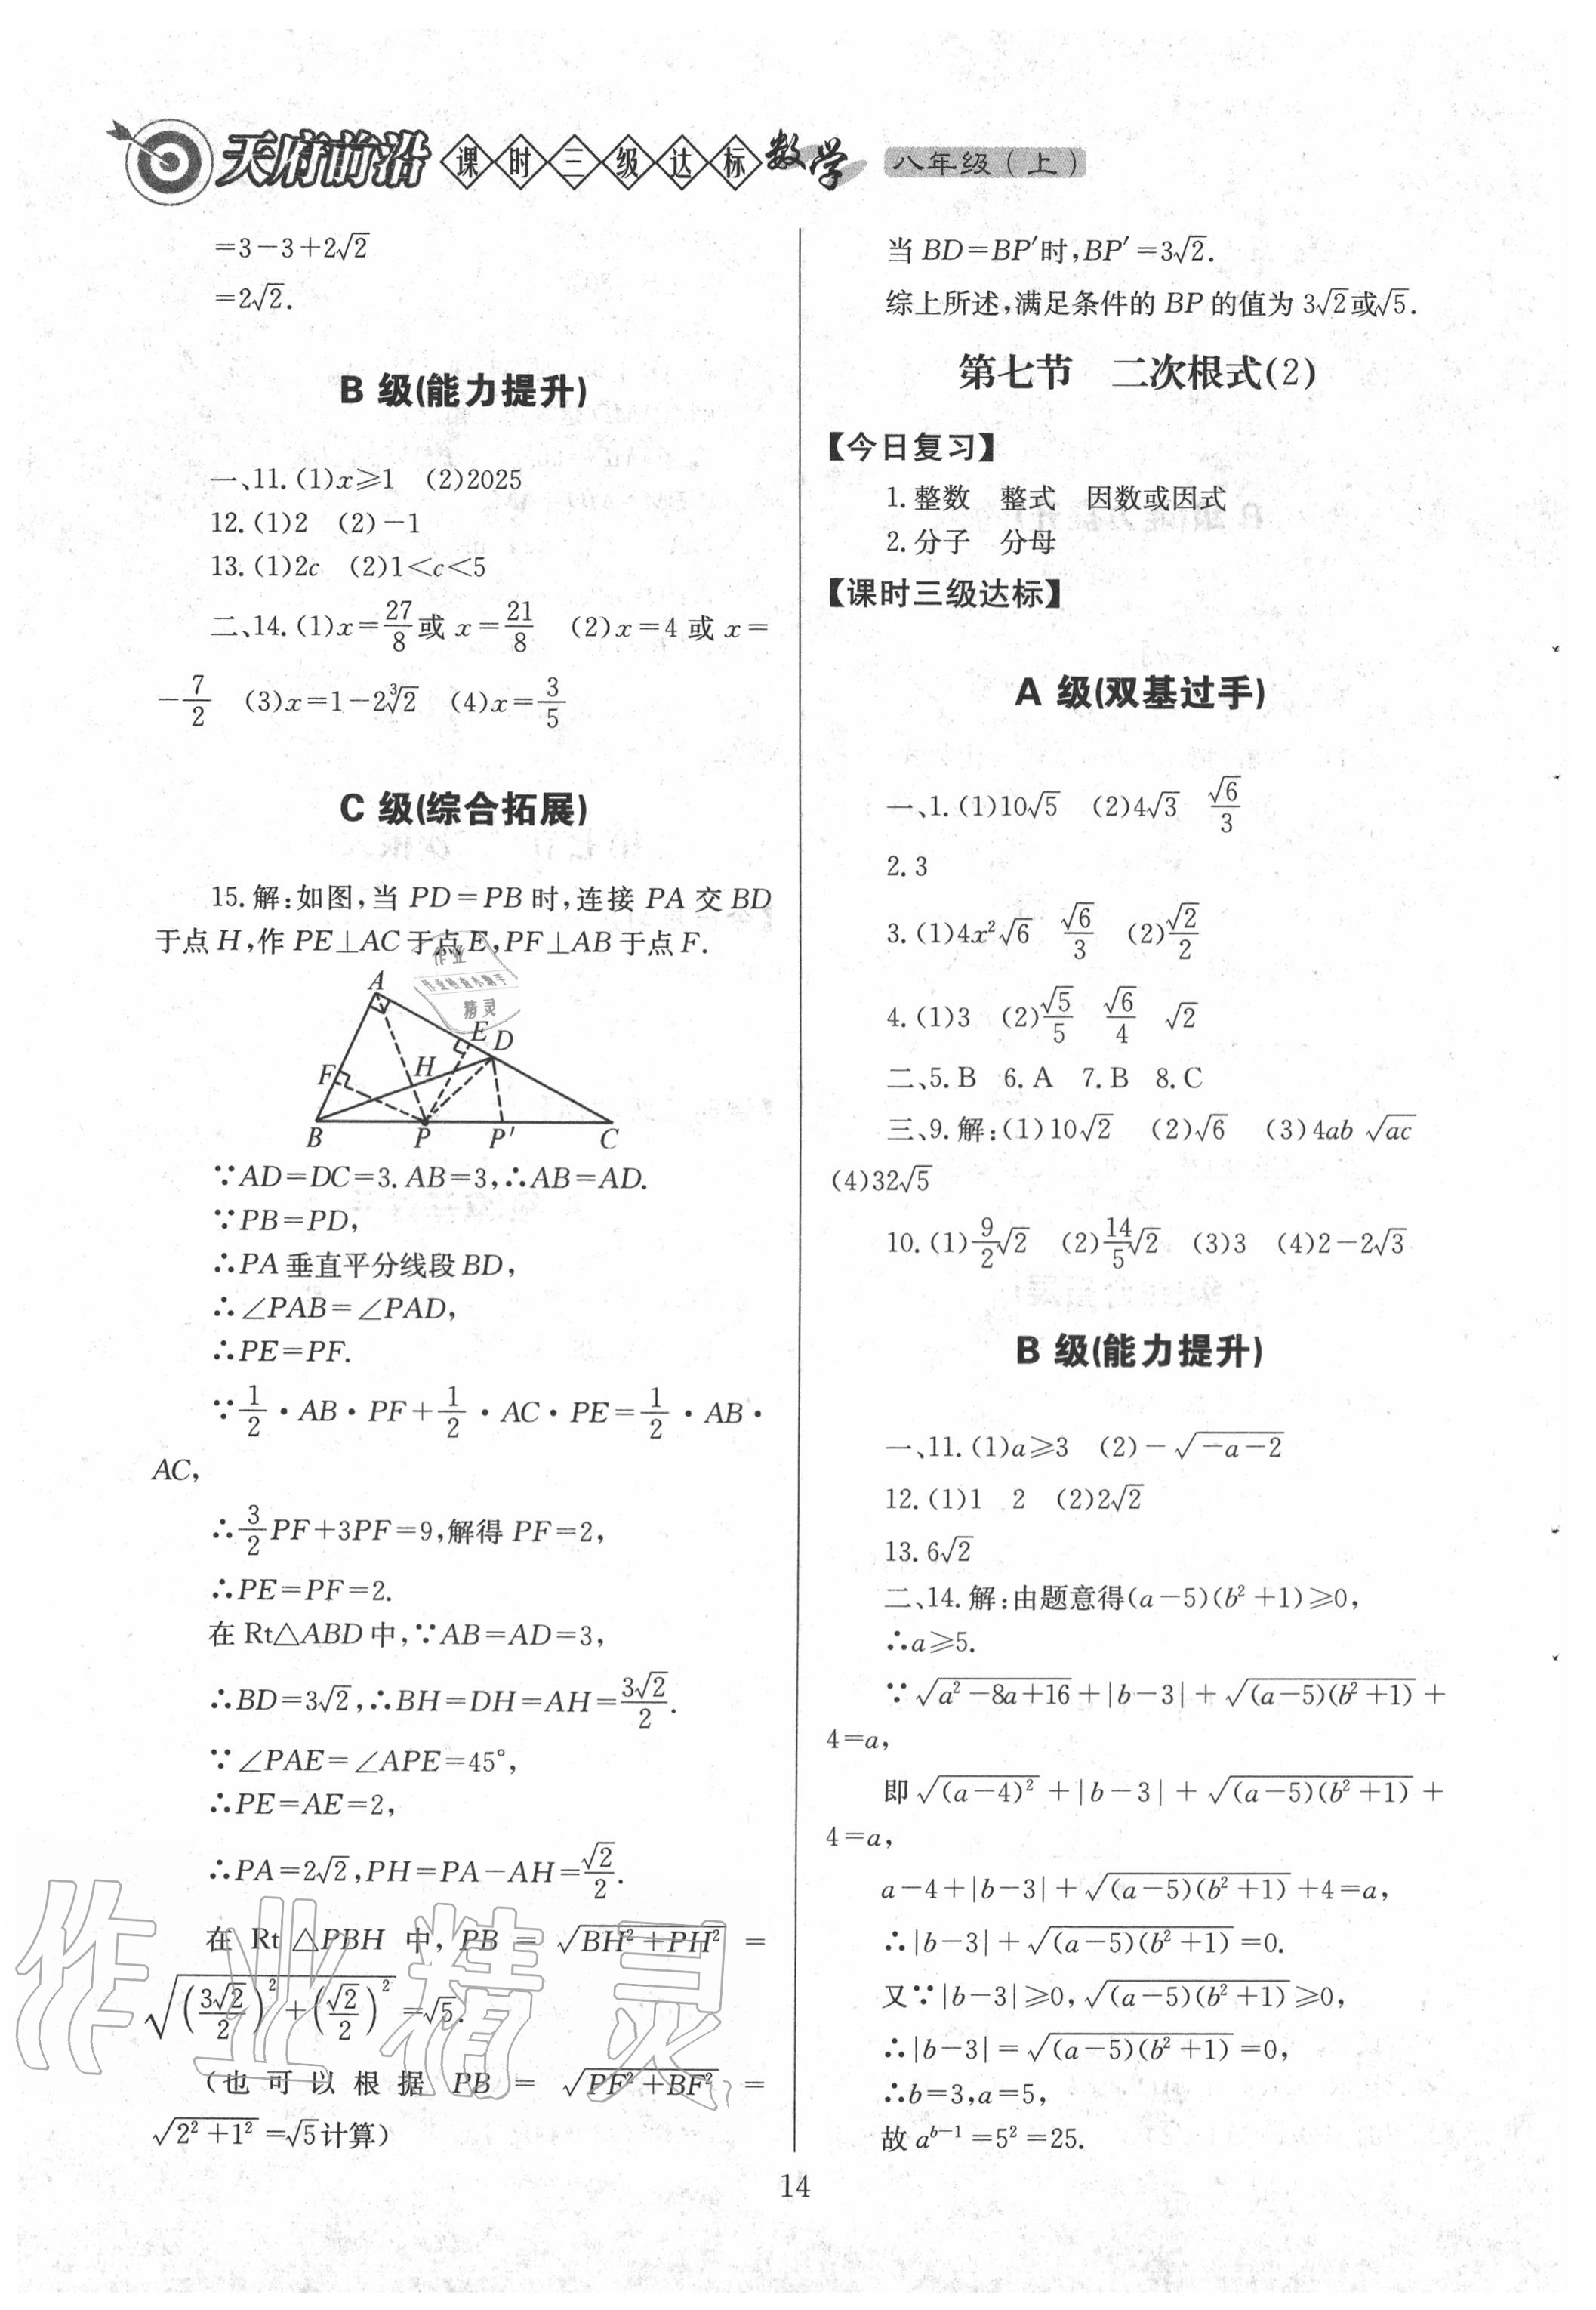 天府前沿 课时三级达标 数学 八年级(上)
=3-3+2√2
=2√2.
B 级(能力提升)
一、11.(1)x≥1 (2)2025
12.(1)2 (2)-1
13.(1)2c (2)1<c<5
二、14.(1)x=27/8或 x=21/8 (2)x=4 或 x=
-7/2 (3)x=1-2∛2 (4)x=3/5
C 级(综合拓展)
15.解:如图,当 PD=PB 时,连接 PA 交 BD
于点 H,作 PE⊥AC 于点 E,PF⊥AB 于点 F.
作业
作业检查小助手
精灵
A
E D
H
F
B P P′ C
∵AD=DC=3. AB=3,∴AB=AD.
∵PB=PD,
∴PA 垂直平分线段 BD,
∴∠PAB=∠PAD,
∴PE=PF.
∵1/2·AB·PF+1/2·AC·PE=1/2·AB·
AC,
∴3/2PF+3PF=9,解得 PF=2,
∴PE=PF=2.
在 Rt△ABD 中,∵AB=AD=3,
∴BD=3√2,∴BH=DH=AH=3√2/2.
∵∠PAE=∠APE=45°,
∴PE=AE=2,
∴PA=2√2,PH=PA-AH=√2/2.
在 Rt △PBH 中, PB = √(BH²+PH²) =
√((3√2/2)²+(√2/2)²)=√5.
(也 可 以 根 据 PB = √(PF²+BF²) =
√(2²+1²)=√5计算)
当 BD=BP′时,BP′=3√2.
综上所述,满足条件的 BP 的值为 3√2或√5.
第七节 二次根式(2)
【今日复习】
1.整数 整式 因数或因式
2.分子 分母
【课时三级达标】
A 级(双基过手)
一、1.(1)10√5 (2)4√3 √6/3
2.3
3.(1)4x²√6 √6/3 (2)√2/2
4.(1)3 (2)√5/5 √6/4 √2
二、5.B 6.A 7.B 8.C
三、9.解:(1)10√2 (2)√6 (3)4ab √(ac)
(4)32√5
10.(1)9/2√2 (2)14/5√2 (3)3 (4)2-2√3
B 级(能力提升)
一、11.(1)a≥3 (2)-√(-a-2)
12.(1)1 2 (2)2√2
13.6√2
二、14.解:由题意得(a-5)(b²+1)≥0,
∴a≥5.
∵√(a²-8a+16)+|b-3|+√((a-5)(b²+1))+
4=a,
即√((a-4)²)+|b-3|+√((a-5)(b²+1))+
4=a,
a-4+|b-3|+√((a-5)(b²+1))+4=a,
∴|b-3|+√((a-5)(b²+1))=0.
又∵|b-3|≥0,√((a-5)(b²+1))≥0,
∴|b-3|=√((a-5)(b²+1))=0,
∴b=3,a=5,
故 a^(b-1)=5²=25.
作业精灵
14